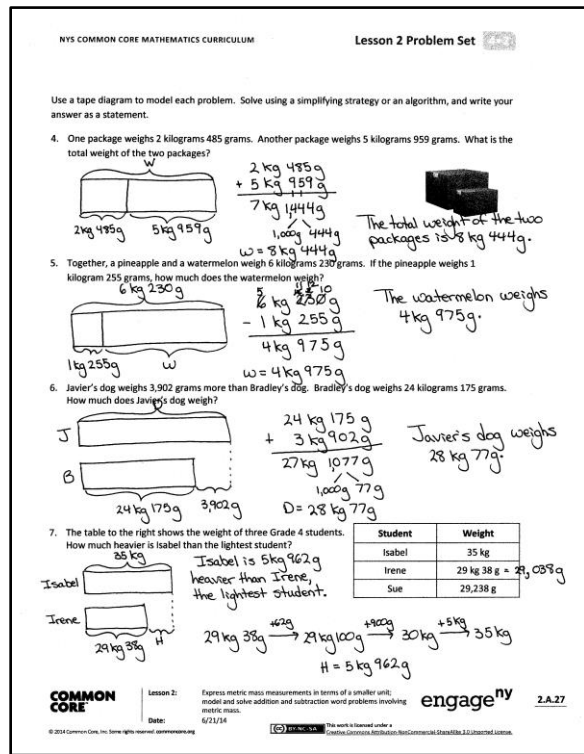 NYS COMMON CORE MATHEMATICS CURRICULUM
Lesson 2 Problem Set
Use a tape diagram to model each problem. Solve using a simplifying strategy or an algorithm, and write your
answer as a statement.
4. One package weighs 2 kilograms 485 grams. Another package weighs 5 kilograms 959 grams. What is the
total weight of the two packages?
W
2kg 485g
5kg 959g
2 kg 485g
+ 5 kg 959g
7 kg 1,444g
1,000g 444g
w = 8 kg 444g
The total weight of the two
packages is 8 kg 444g.
5. Together, a pineapple and a watermelon weigh 6 kilograms 230 grams. If the pineapple weighs 1
kilogram 255 grams, how much does the watermelon weigh?
6 kg 230g
1kg 255g
W
5 11 12 10
6 kg 230g
- 1 kg 255g
4kg 975g
w = 4 kg 975g
The watermelon weighs
4kg 975g.
6. Javier's dog weighs 3,902 grams more than Bradley's dog. Bradley's dog weighs 24 kilograms 175 grams.
How much does Javier's dog weigh?
D
J
B
24 kg 175g
3,902g
24 kg 175 g
+ 3 kg 902g
27kg 1,077g
1,000g 77g
D = 28 kg 77g
Javier's dog weighs
28 kg 77g.
7. The table to the right shows the weight of three Grade 4 students.
How much heavier is Isabel than the lightest student?
35 kg
Isabel
Irene
29kg 38g
H
Isabel is 5kg 962g
heavier than Irene,
the lightest student.
Student Weight
Isabel 35 kg
Irene 29 kg 38 g = 29,038g
Sue 29,238 g
+62g +900g +5kg
29kg 38g → 29kg 100g → 30kg → 35kg
H = 5 kg 962g
COMMON
CORE
Lesson 2:
Express metric mass measurements in terms of a smaller unit;
model and solve addition and subtraction word problems involving
metric mass.
Date:
6/21/14
engage ny
2.A.27
© 2014 Common Core, Inc. Some rights reserved. commoncore.org
CC BY-NC-SA
This work is licensed under a
Creative Commons Attribution-NonCommercial-ShareAlike 3.0 Unported License.